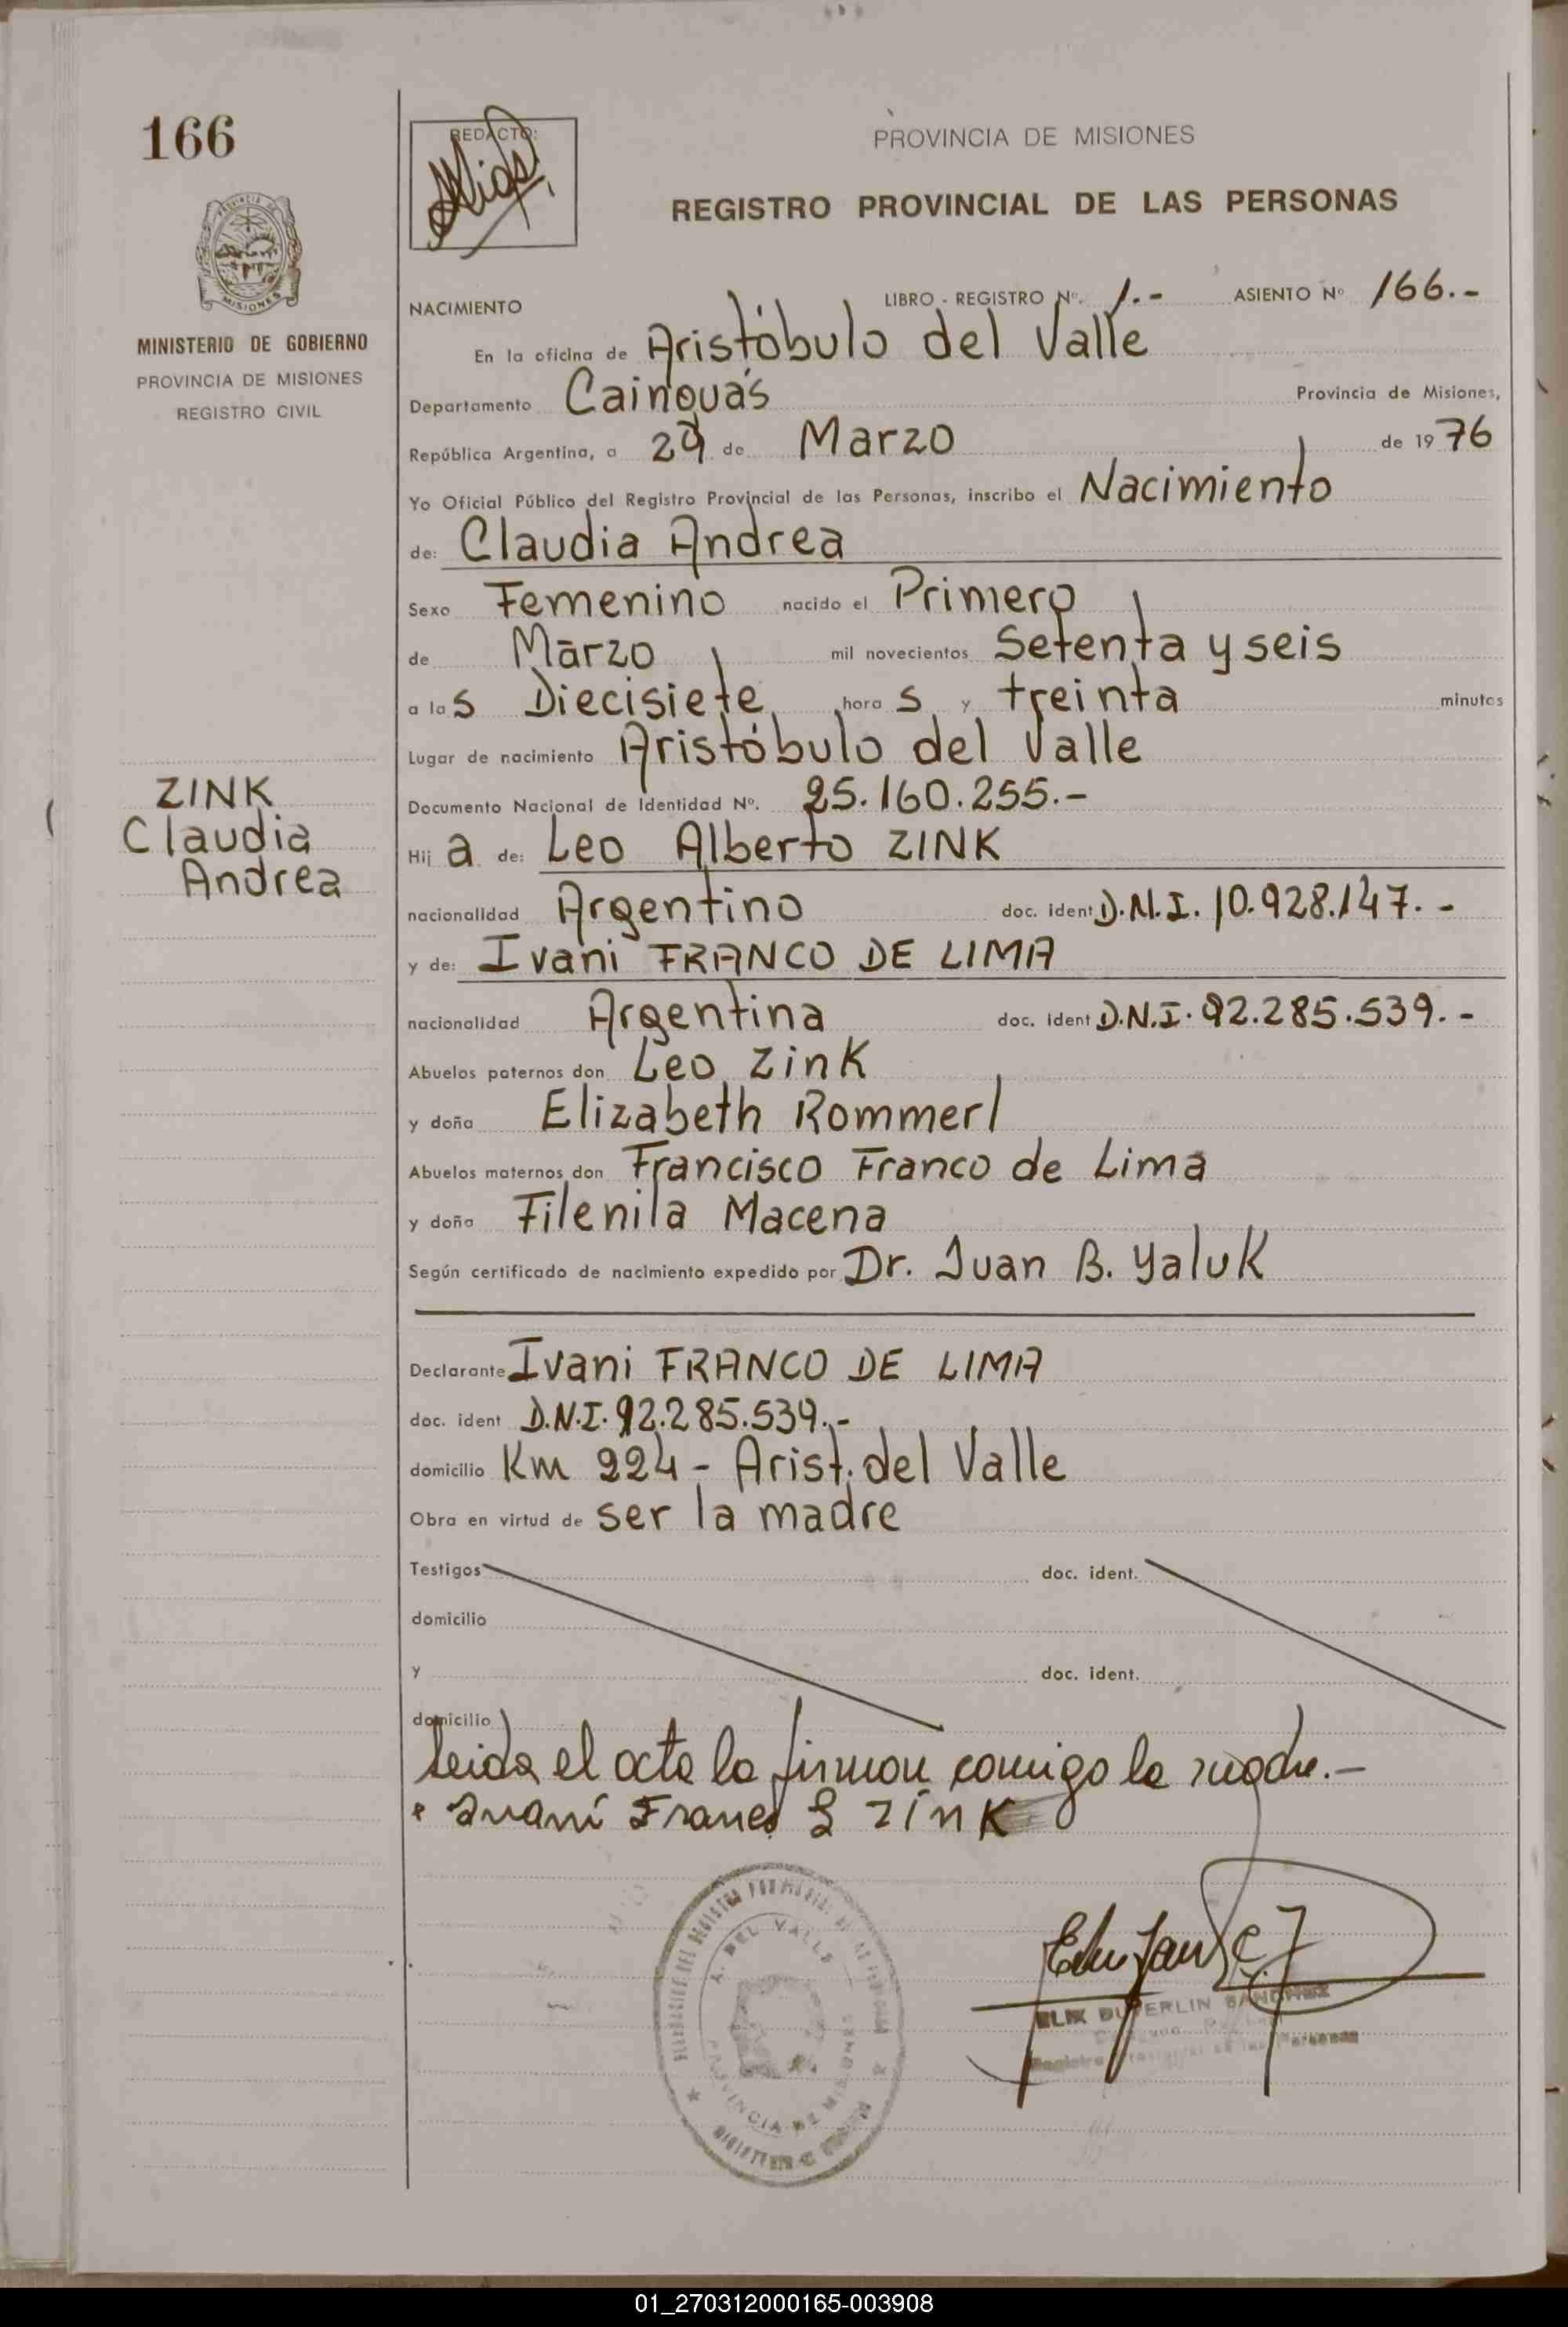 166
REDACTO:
PROVINCIA DE MISIONES
REGISTRO PROVINCIAL DE LAS PERSONAS
MISIONES
MINISTERIO DE GOBIERNO
PROVINCIA DE MISIONES
REGISTRO CIVIL
NACIMIENTO LIBRO - REGISTRO Nº. 1.- ASIENTO Nº 166.-
En la oficina de Aristóbulo del Valle
Departamento Cainguás Provincia de Misiones,
República Argentina, a 29 de Marzo de 1976
Yo Oficial Público del Registro Provincial de las Personas, inscribo el Nacimiento
de: Claudia Andrea
Sexo Femenino nacido el Primero
de Marzo mil novecientos Setenta y seis
a las Diecisiete horas y treinta minutos
Lugar de nacimiento Aristóbulo del Valle
Documento Nacional de Identidad Nº. 25.160.255.-
ZINK
Claudia
Andrea
Hija de: Leo Alberto ZINK
nacionalidad Argentino doc. ident D.N.I. 10.928.147.-
y de: Ivani FRANCO DE LIMA
nacionalidad Argentina doc. ident D.N.I. 92.285.539.-
Abuelos paternos don Leo Zink
y doña Elizabeth Rommerl
Abuelos maternos don Francisco Franco de Lima
y doña Filenila Macena
Según certificado de nacimiento expedido por Dr. Juan B. Yaluk
Declarante Ivani FRANCO DE LIMA
doc. ident D.N.I. 92.285.539.-
domicilio Km 224 - Arist. del Valle
Obra en virtud de ser la madre
Testigos doc. ident.
domicilio
y doc. ident.
domicilio
Leida el acta la firman conmigo la madre.-
Ivaní Franco L Zink
A. DEL VALLE
PROVINCIA DE MISIONES
SANCHEZ
01_270312000165-003908